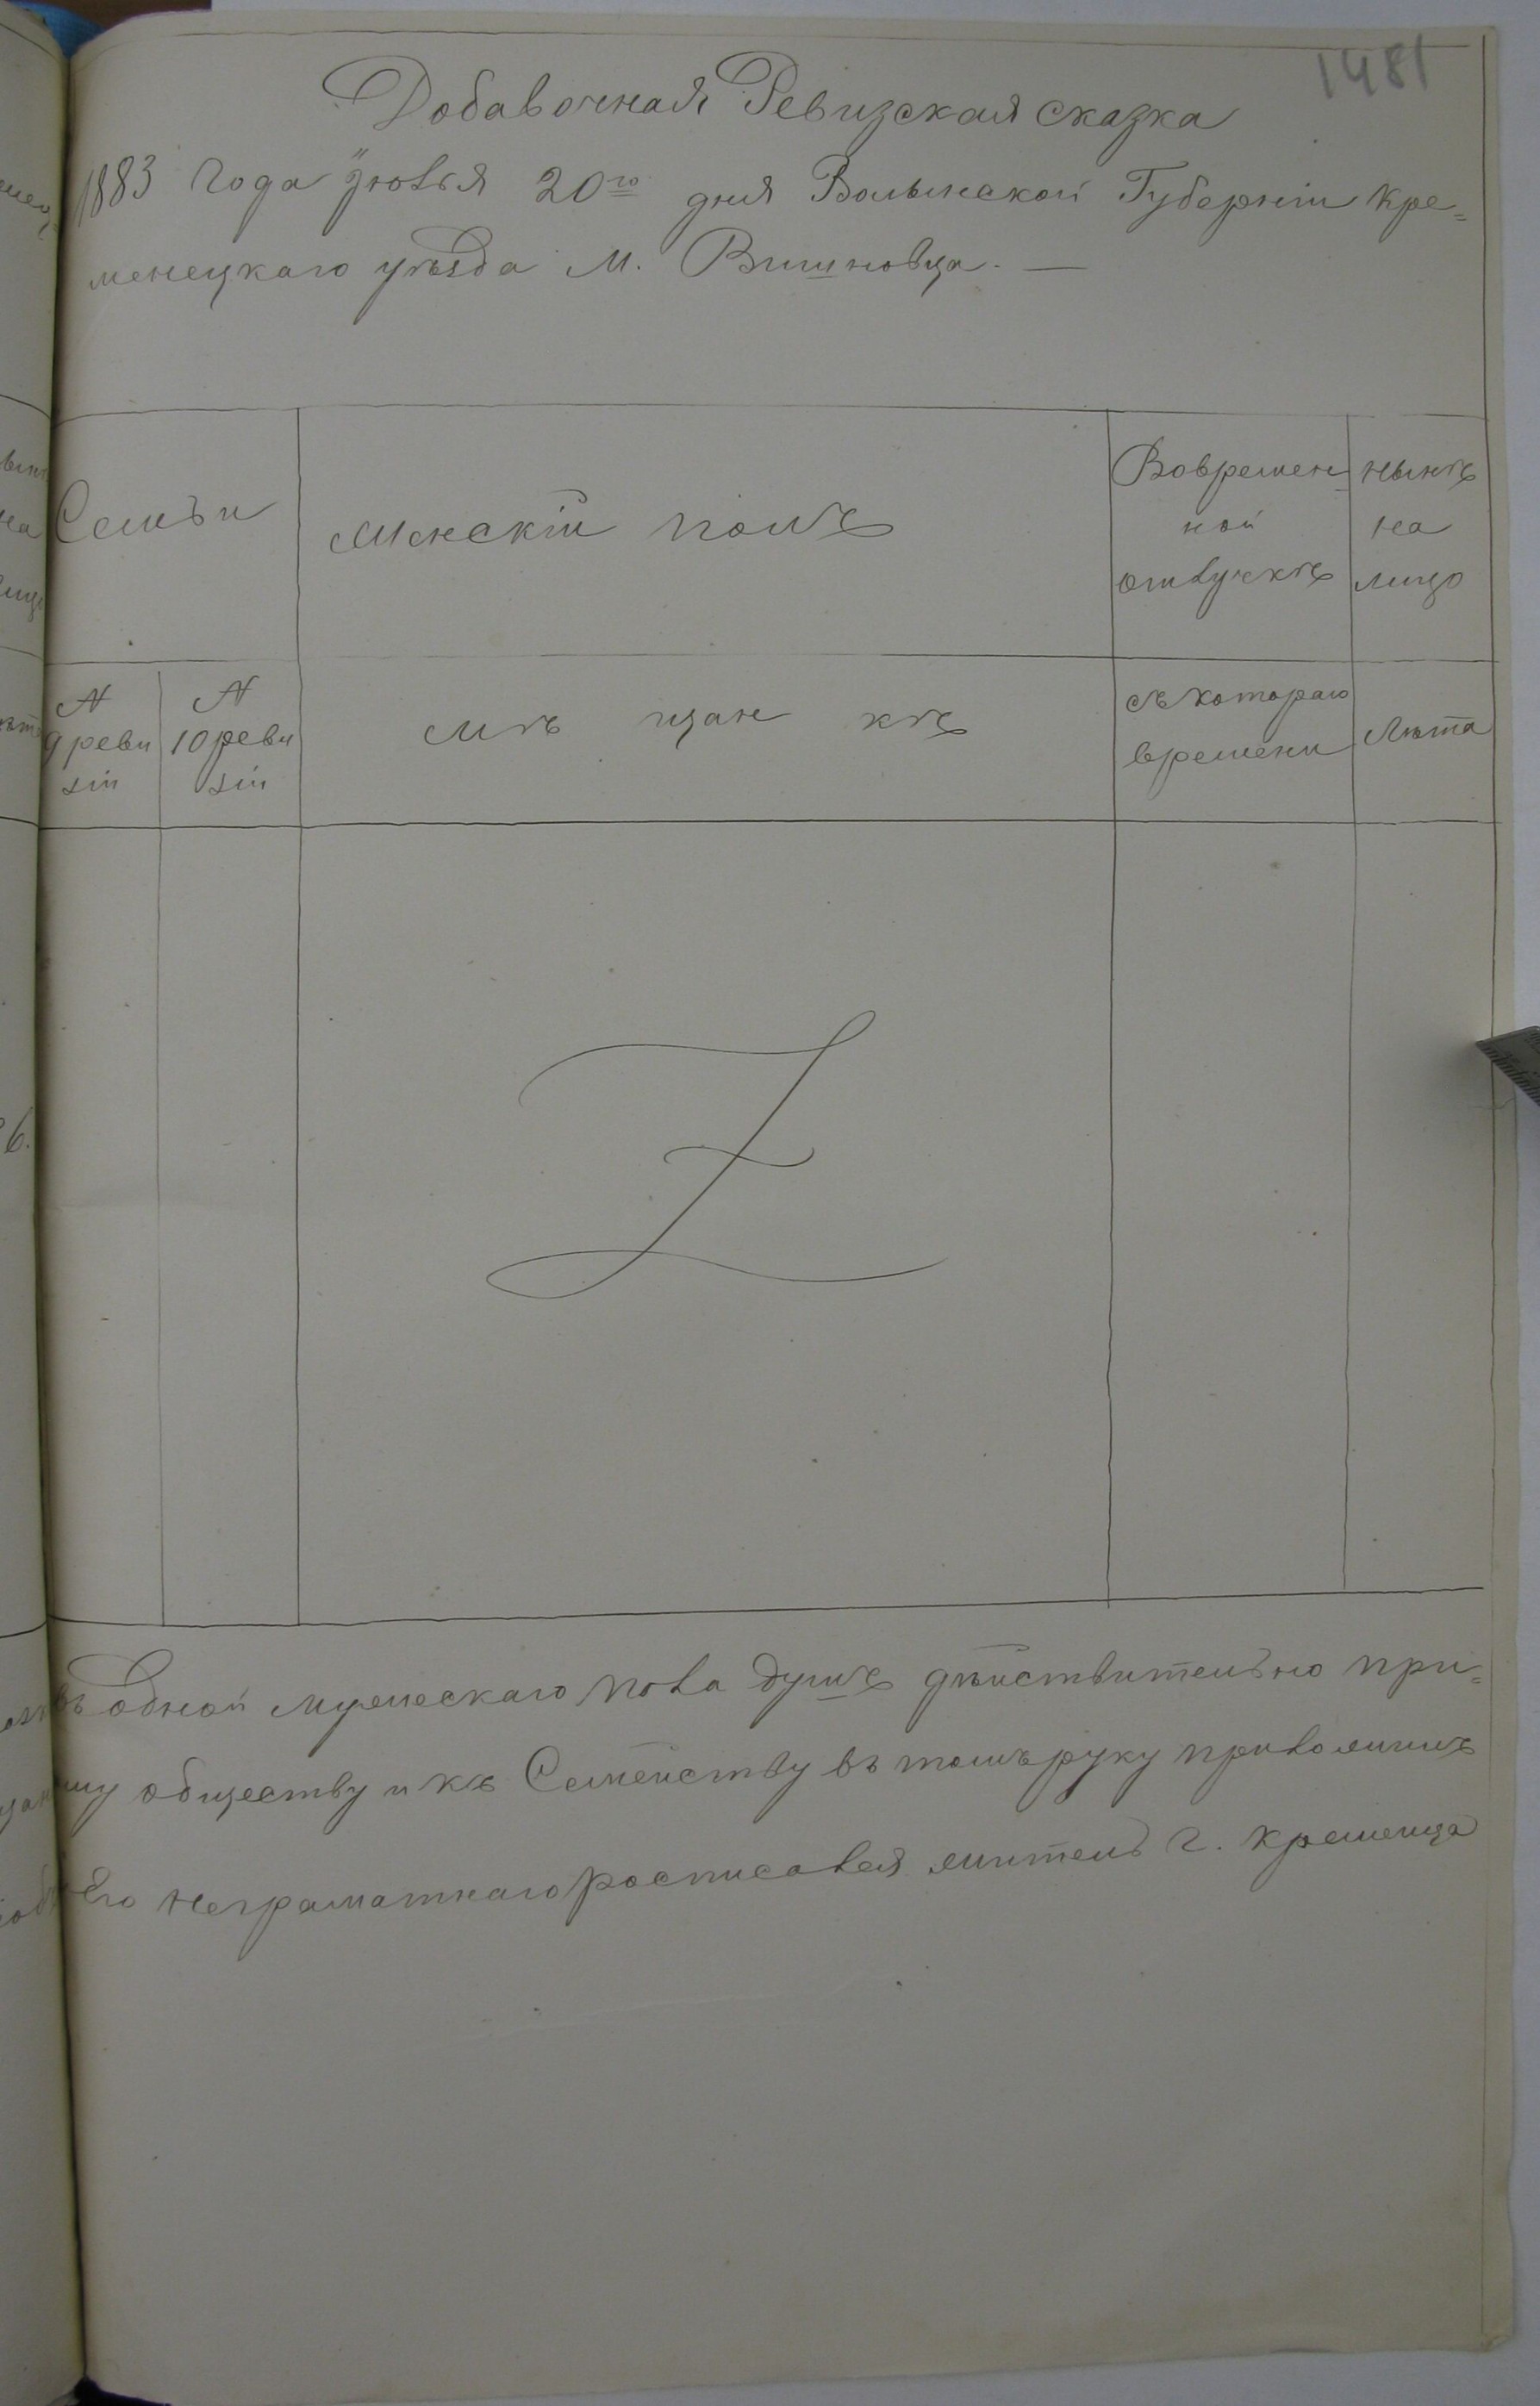 1481
Добавочная Ревизская сказка
1883 года Июля 20го дня Волынской Губернiи Кре=
менецкаго уѣзда М. Вишновца. —
Семьи
Женскiй полъ
Вовремен
ной
отлучкѣ
нынѣ
на
лицо
N
9 реви
зiи
N
10 реви
зiи
мѣ щан кѣ
съ котораго
времени
Лѣта
въ одной мужескаго пола душѣ дѣйствительно при=
му обществу и къ Семейству въ томъ руку приложилъ
его неграматнаго росписался житель г. Кременца